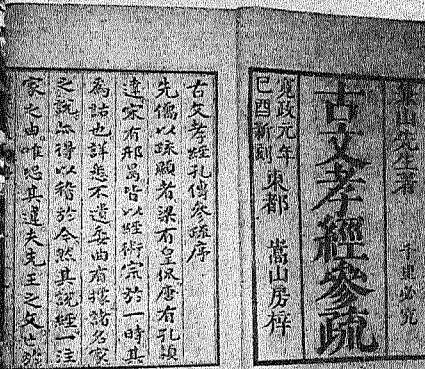 兼山先生著
千里必究
古文孝經參疏
寛政元年
己酉新刻
東都 嵩山房梓
古文孝經孔傳參疏序
先儒以疏顯者梁有皇侃唐有孔頴
達宋有邢昺皆以經術宗於一時其
為詁也詳悉不遺委曲有據諸名家
之説亦得以稽於今然其説經一注
家之曲唯恐其違夫先王之文也